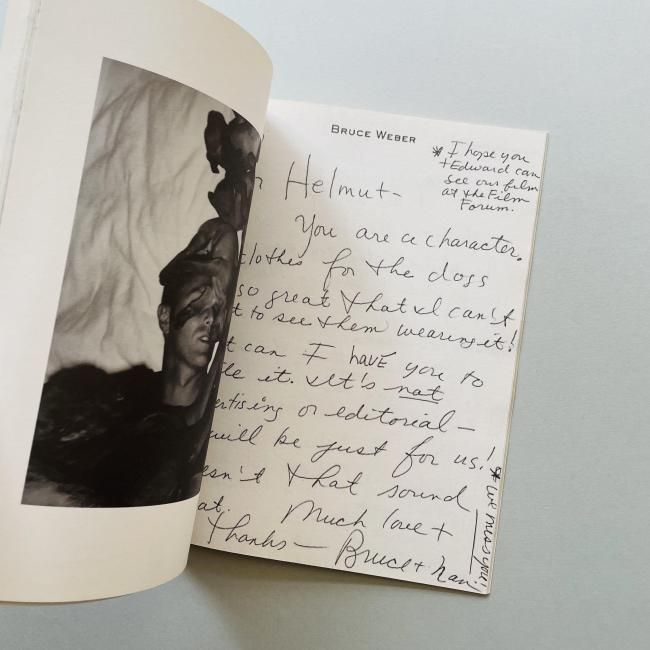 BRUCE WEBER
* I hope you
+ Edward can
see our film
at the Film
Forum.
Helmut -
You are a character.
clothes for the dogs
so great that I can't
t to see them wearing it!
t can I have you to
le it. It's not
ertising or editorial —
will be just for us!
esn't that sound
at. Much love +
Thanks — Bruce + Nan
* we miss you!